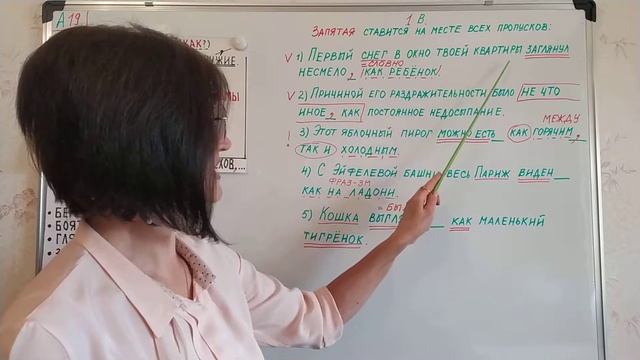 А 19
1 В.
КАК?)
ЗАПЯТАЯ СТАВИТСЯ НА МЕСТЕ ВСЕХ ПРОПУСКОВ:
V 1) ПЕРВЫЙ СНЕГ В ОКНО ТВОЕЙ КВАРТИРЫ ЗАГЛЯНУЛ
=СЛОВНО
НЕСМЕЛО, КАК РЕБЁНОК.
V 2) ПРИЧИНОЙ ЕГО РАЗДРАЖИТЕЛЬНОСТИ БЫЛО НЕ ЧТО
ИНОЕ, КАК ПОСТОЯННОЕ НЕДОСЫПАНИЕ.
МЕЖДУ
! 3) ЭТОТ ЯБЛОЧНЫЙ ПИРОГ МОЖНО ЕСТЬ _ КАК ГОРЯЧИМ,
ТАК И ХОЛОДНЫМ.
4) С ЭЙФЕЛЕВОЙ БАШНИ ВЕСЬ ПАРИЖ ВИДЕН _
ФРАЗ-ЗМ
КАК НА ЛАДОНИ.
5) КОШКА ВЫГЛЯ _ КАК МАЛЕНЬКИЙ
ТИГРЁНОК.